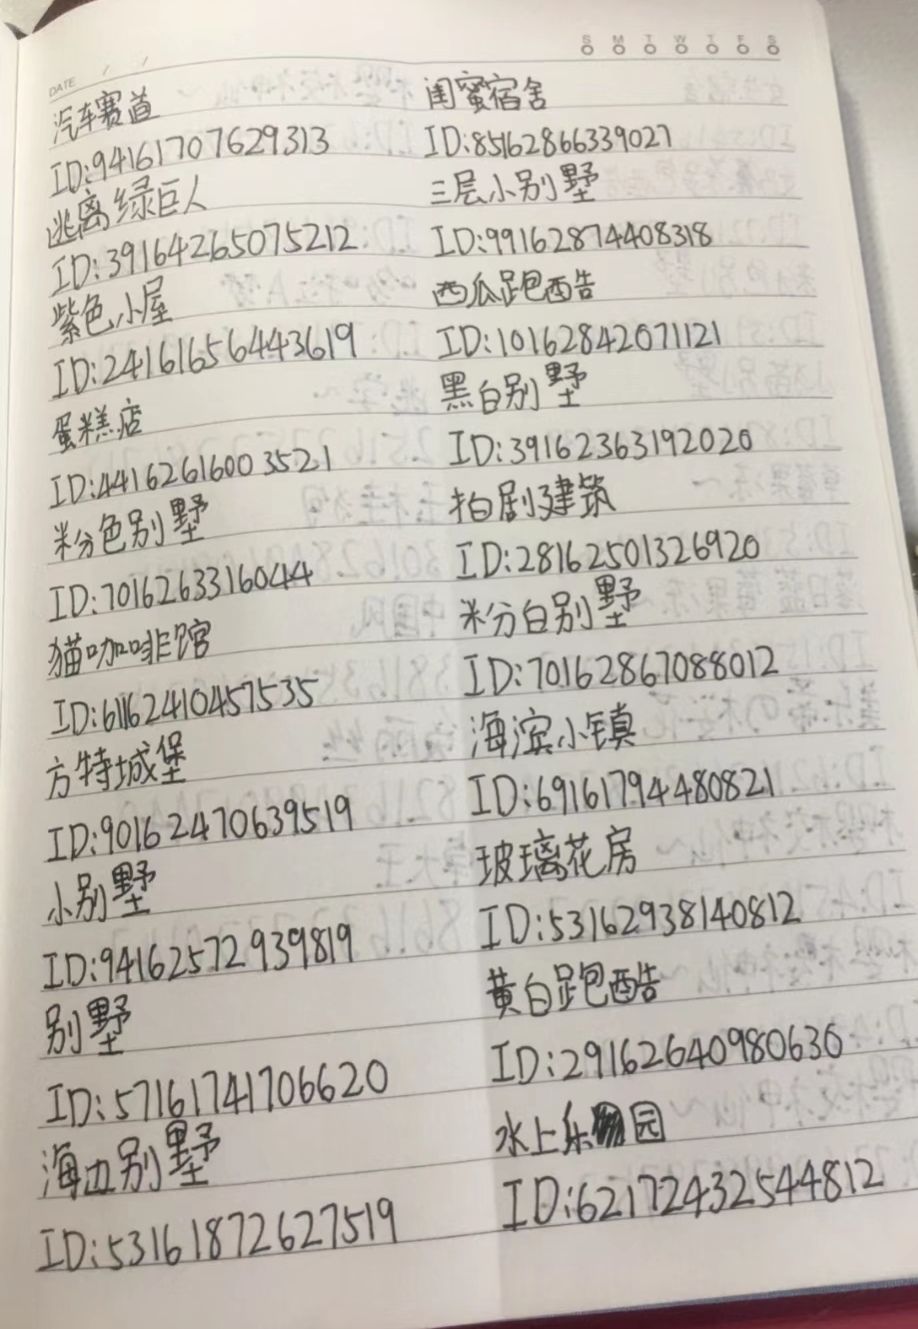 S M T W T F S
DATE / /
汽车赛道
ID:94161707629313
逃离绿巨人
ID:39164265075212
紫色小屋
ID:24161656443619
蛋糕店
ID:44162616003521
粉色别墅
ID:7016263316044
猫咖啡馆
ID:61162410457535
方特城堡
ID:90162470639519
小别墅
ID:94162572939819
别墅
ID:57161741706620
海边别墅
ID:53161872627519
闺蜜宿舍
ID:85162866339027
三层小别墅
ID:99162874408318
西瓜跑酷
ID:10162842071121
黑白别墅
ID:39162363192020
拍剧建筑
ID:28162501326920
粉白别墅
ID:70162867088012
海滨小镇
ID:69161794480821
玻璃花房
ID:53162938140812
黄白跑酷
ID:29162640980630
水上乐园
ID:62172432544812